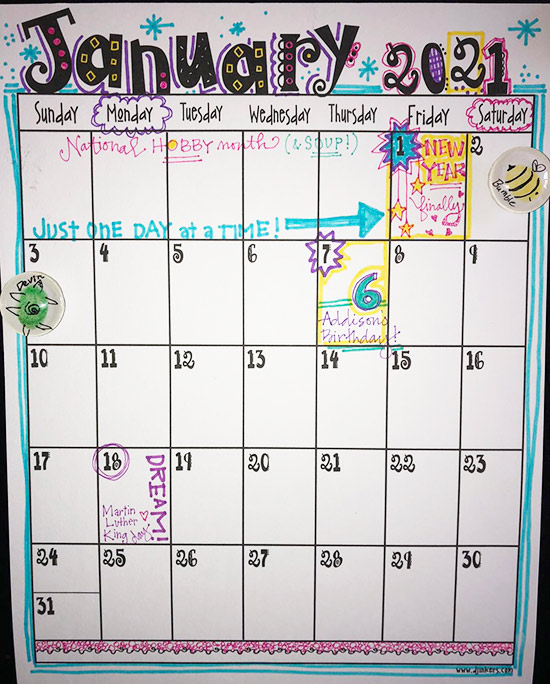 January 2021
Sunday Monday Tuesday Wednesday Thursday Friday Saturday
National HOBBY month (& SOUP!)
1 NEW YEAR finally
2
Bumble
JUST ONE DAY at a TIME!
3 4 5 6 7 8 9
6
Addison's
Birthday!
10 11 12 13 14 15 16
17 18 19 20 21 22 23
DREAM!
Martin
Luther
King day!
24 25 26 27 28 29 30
31
www.djinkers.com